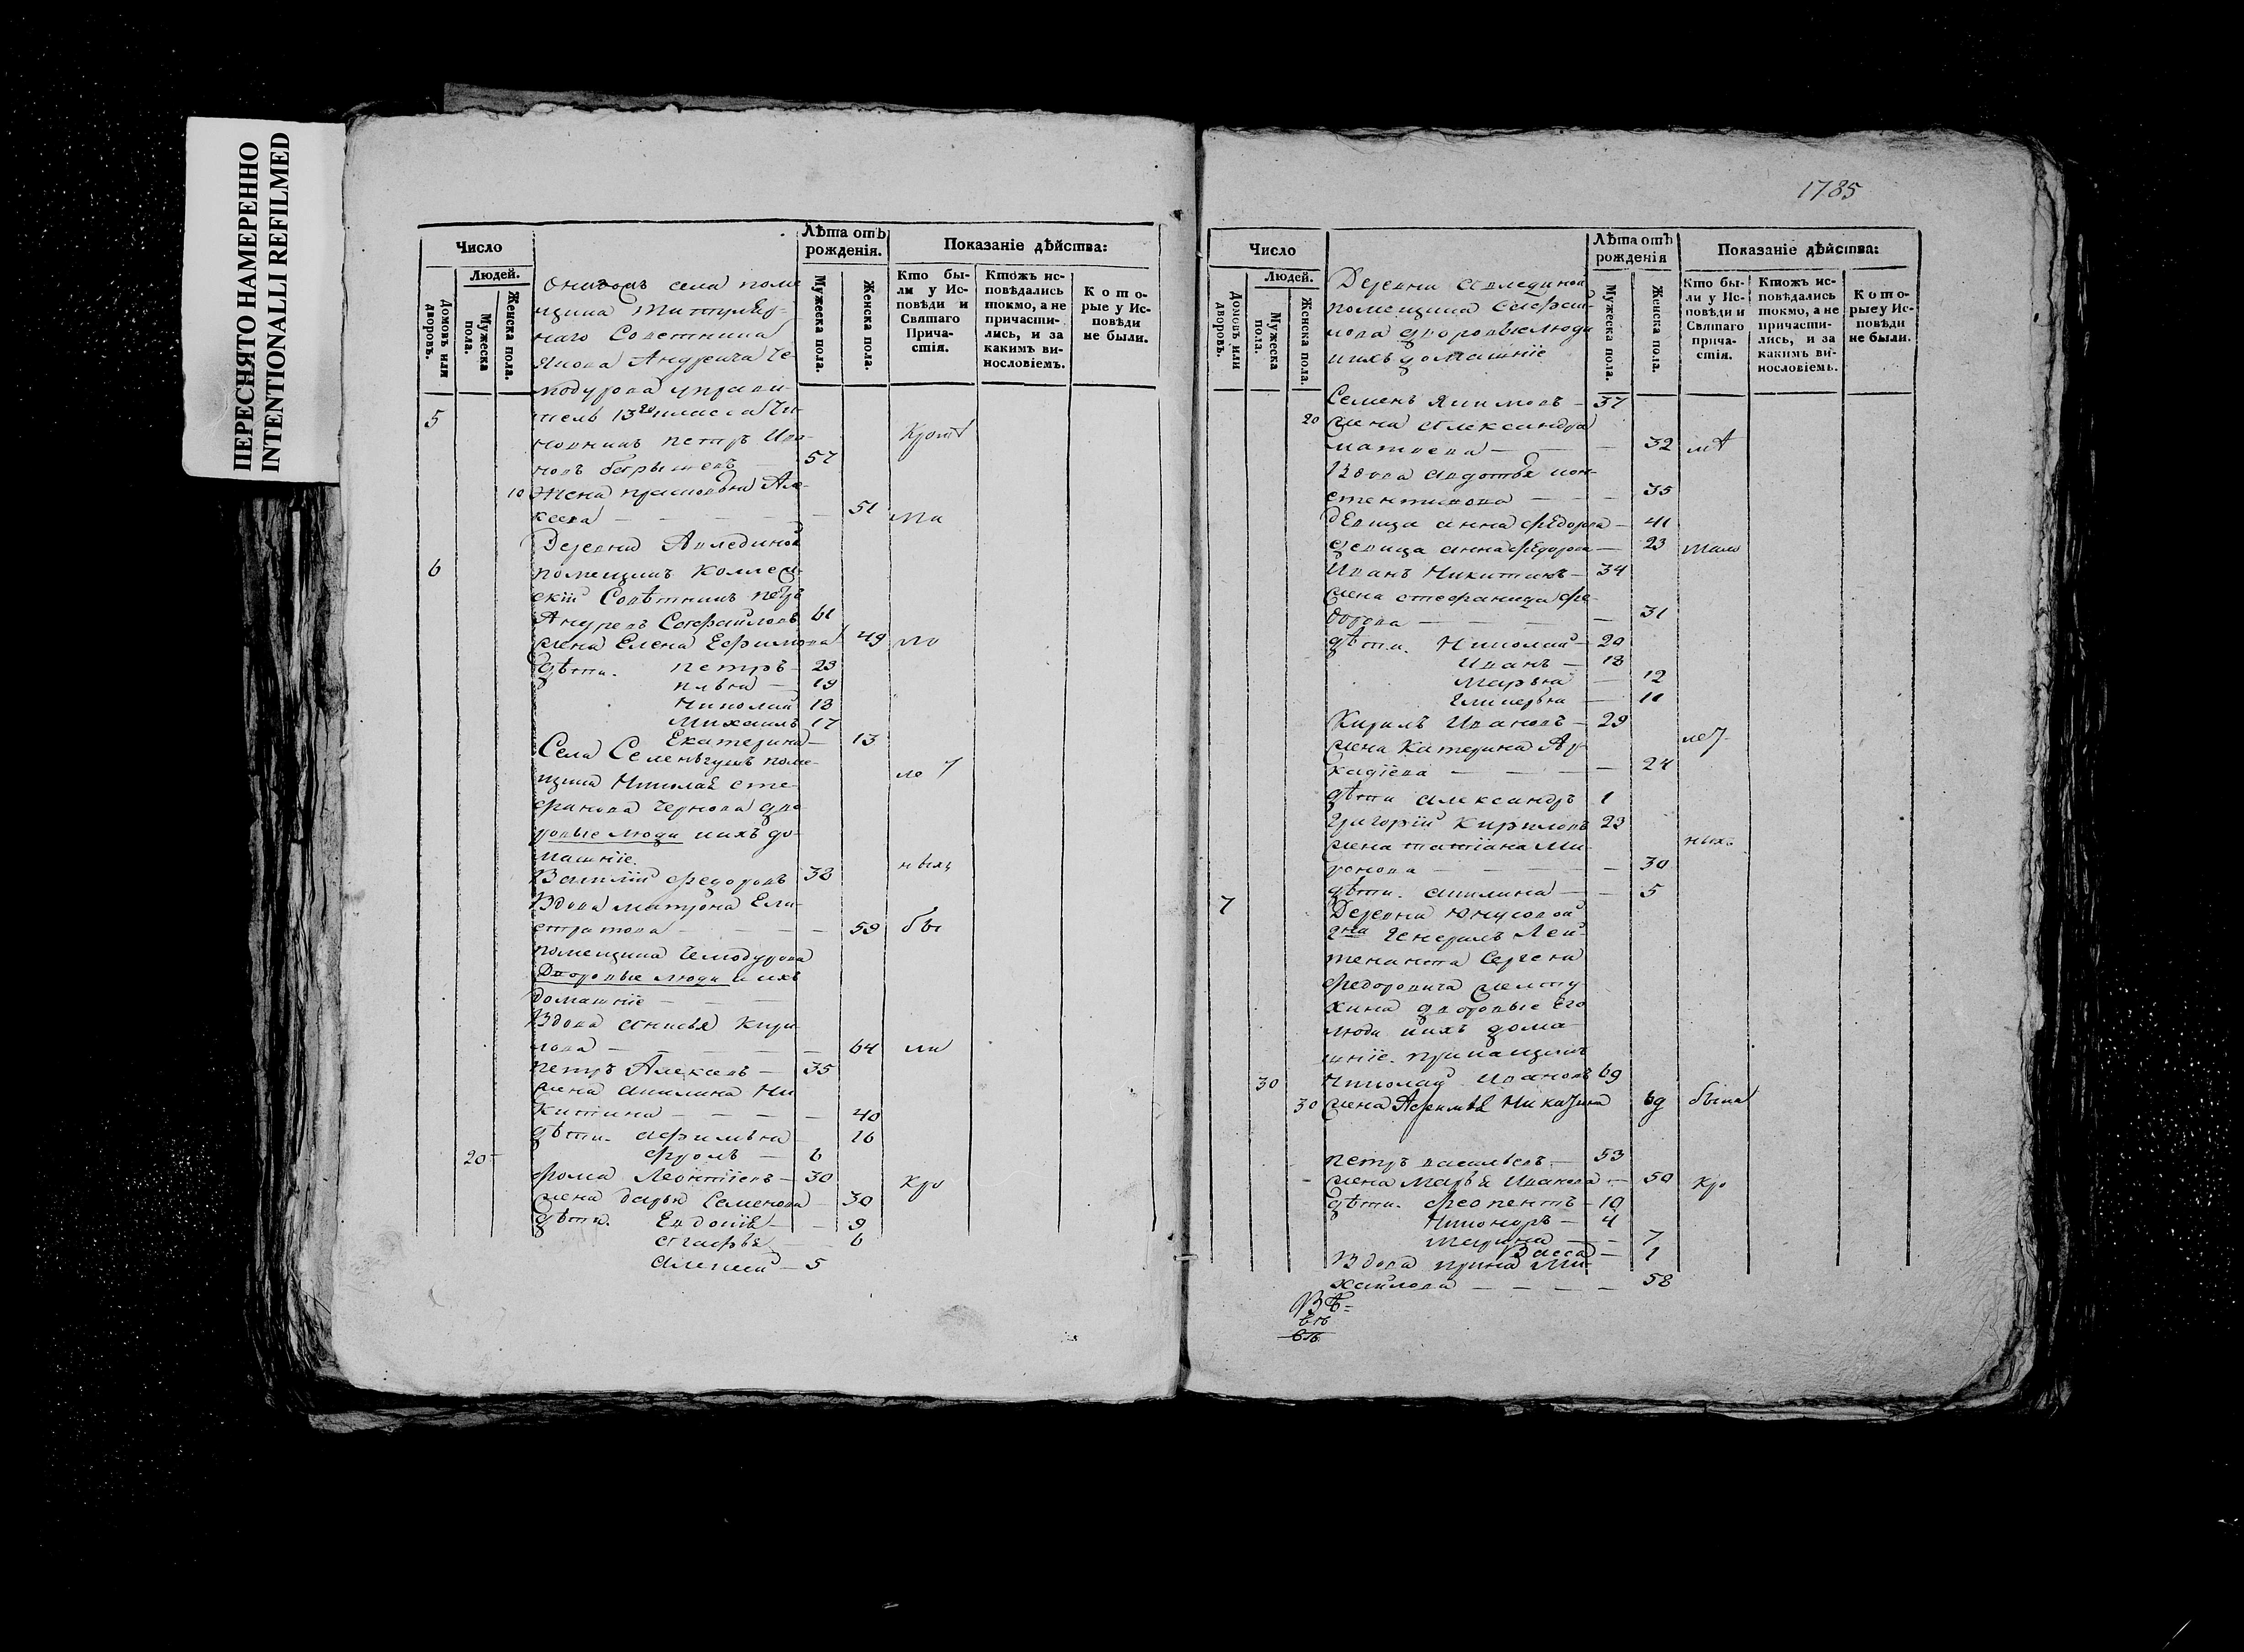 ПЕРЕСНЯТО НАМЕРЕННО
INTENTIONALLI REFILMED
Число
Людей.
Домовъ или дворовъ.
Мужеска пола.
Женска пола.
Лѣта отъ рожденія.
Мужеска пола.
Женска пола.
Показаніе дѣйства:
Кто бы-
ли у Ис-
повѣди и
Святаго
Прича-
стія.
Ктожъ ис-
повѣдались
токмо, а не
причасти-
лись, и за
какимъ ви-
нословіемъ.
Кото-
рые у Ис-
повѣди
не были.
села поме
щика Титуляр-
наго Советника
Якова Андреича Че-
модурова управи-
5 тель 13го класса Чи-
новникъ Петръ Ива-
новъ — 57
10 Жена Прасковья Але-
ксева — 51
Деревни
6 помещикъ Коллеж-
скій Совѣтникъ Петръ
61
жена Елена Ефимова 49
дѣти. Петръ — 23
19
Николай 18
Михаилъ 17
Екатерина — 13
Села поме-
щика Николая Сте-
фанова Чернова дво
ровые люди иихъ до-
машніе.
Василій Федоровъ 38
Вдова Матрона Ели-
стратова — 59 бы
помещика Чемодурова
Дворовые люди и ихъ
домашніе —
Вдова Анисья Кири-
лова — 64 ли
Петръ Алексевъ — 35
жена Акилина Ни
китина — 40
дѣти. Афимья 16
20 Фролъ — 6
Фома Леонтіевъ — 30
жена Дарья Семенова 30
дѣти. Евдокія — 9
Агафья 6
Алексей — 5
1785
Число
Людей.
Домовъ или дворовъ.
Мужеска пола.
Женска пола.
Лѣта отъ рожденія
Мужеска пола.
Женска пола.
Показаніе дѣйства:
Кто бы-
ли у Ис-
повѣди и
Святаго
прича-
стія.
Ктожъ ис-
повѣдались
токмо, а не
причасти-
лись, и за
какимъ ви-
нословіемъ.
Кото-
рые у Ис-
повѣди
не были.
Деревни
помещика
лова дворовые люди
иихъ домашніе
Семенъ Якимовъ — 37
20 жена Александра
Матвева — 32
Вдова Авдотья Кон-
стентинова — 35
девица Анна Федорова — 41
девица Анна Федорова — 23
Иванъ Никитинъ — 34
жена Стефанида Фе-
дорова — 31
дѣти. Николай — 20
Иванъ — 18
Марья — 12
11
Кирилъ Ивановъ — 29
жена Катерина Ар-
кадіева — 24
дѣти Александръ 1
Григорій Кириловъ 23
жена Татіана Ми-
ронова — 30
дѣти. Акилина — 5
7 Деревни Юнусовой
Гна Генералъ Лей-
тенанта Сергея
Федоровича Желту-
хина дворовые Его
люди иихъ дома-
шніе. прикащикъ
30 Николай Ивановъ 69
30 жена Афимья 69 были
Петръ Васильевъ — 53
жена Марья Иванова — 50 Кро
дѣти. Феопентъ — 10
Никоноръ — 4
Марина — 7
Васса — 1
Вдова Ирина Ми-
хайлова — 58